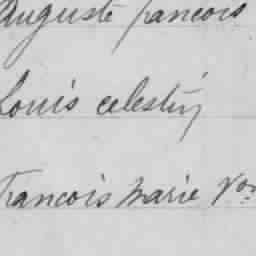 Auguste francois
Louis celestin
Francois Marie